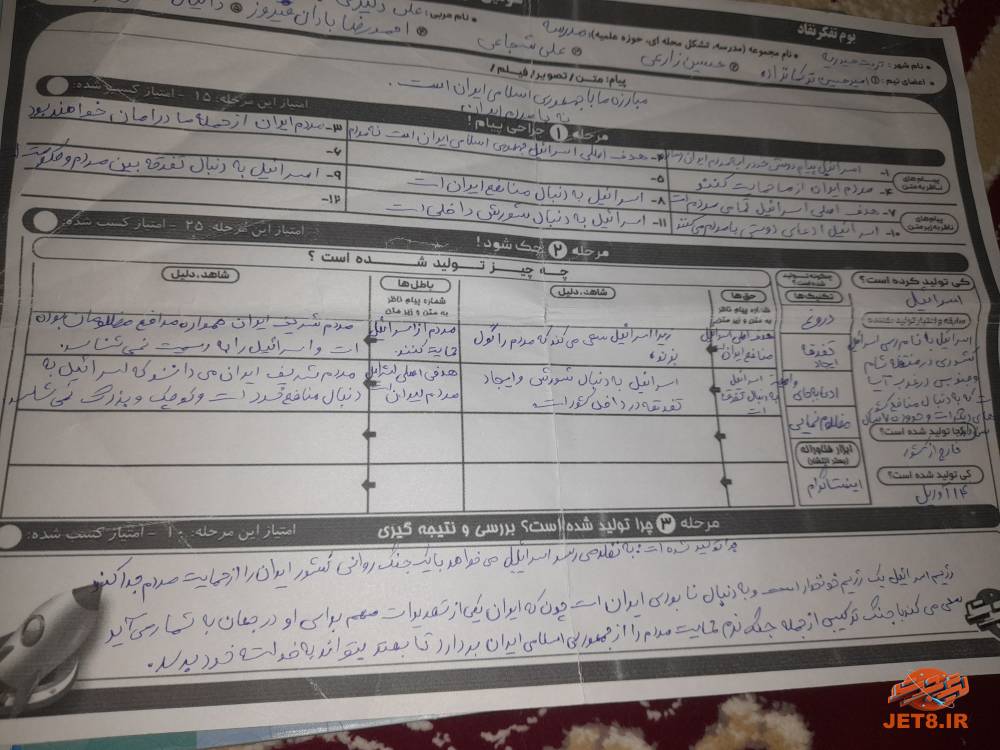 بوم تفکر نقاد
نام شهر: تربت حیدریه • نام مجموعه (مدرسه، تشکل محله ای، حوزه علمیه): مدرسه • نام مربی: علی
اعضای تیم: ① امیرحسین ② حسین زارعی ③ علی شجاعی ④ احمدرضا باران فیروز ⑤ دانیال
پیام/ متن/ تصویر/ فیلم/
مبارزه ما با جمهوری اسلامی ایران است.
نه با مردم ایران
مرحله ① جراحی پیام! امتیاز این مرحله: ۱۵ - امتیاز کسب شده:
پیام های ناظر به متن
۱- اسرائیل پیام دوستی خود را به مردم ایران
۲- هدف اصلی اسرائیل جمهوری اسلامی ایران است نه مردم
۳- مردم ایران از حمله ما در امان خواهند بود
۴- مردم ایران از ما حمایت کنند
۵-
۶-
پیام های ناظر به زیر متن
۷- هدف اصلی اسرائیل تمامی مردم است
۸- اسرائیل به دنبال منافع ایران است
۹- اسرائیل به دنبال تفرقه بین مردم و حکومت
۱۰- اسرائیل ادعای دوستی با مردم می‌کند
۱۱- اسرائیل به دنبال شورش داخلی است
۱۲-
مرحله ② چک شود! امتیاز این مرحله: ۲۵ - امتیاز کسب شده:
کی تولید کرده است؟
اسرائیل
سابقه و اعتبار تولید کننده
اسرائیل به نام رسمی اسرائیل
کشوری در منطقه شام
و مدیترانه در غرب آسیا
است که به دنبال منافع کشور
های دیگر است و
کجا تولید شده است؟
خارج از کشور
کی تولید شده است؟
۱۴ آوریل
چگونه تولید شده است؟
تکنیک ها
دروغ
تفرقه
ایجاد
ادعاهای
مظلوم نمایی
ابزار فناورانه
(بستر انتشار)
اینستاگرام
چه چیز تولید شده است ؟
حق‌ها
شماره پیام ناظر به متن و زیر متن
هدف اصلی اسرائیل
منافع ایران
اسرائیل
به دنبال تفرقه
است
شاهد، دلیل
زیرا اسرائیل سعی می کند که مردم را گول
بزند
اسرائیل به دنبال شورش و ایجاد
تفرقه در داخل کشور است
باطل‌ها
شماره پیام ناظر به متن و زیر متن
مردم از اسرائیل
حمایت کنند
هدف اصلی اسرائیل
مردم ایران
شاهد، دلیل
مردم شریف ایران همواره مدافع مظلومان بوده
است و اسرائیل را به رسمیت نمی شناسد.
مردم شریف ایران می دانند که اسرائیل به
دنبال منافع خود است و کوچک و بزرگ نمی شناسد
مرحله ③ چرا تولید شده است؟ بررسی و نتیجه گیری امتیاز این مرحله: ۱۰ - امتیاز کسب شده:
چرا تولید شده است: به نظر می رسد اسرائیل می خواهد با یک جنگ روانی کشور ایران را از حمایت مردم جدا کند
رژیم اسرائیل یک رژیم خونخوار است و به دنبال نابودی ایران است چون که ایران یکی از تهدیدات مهم برای او در جهان به شمار می آید
سعی می کند با جنگ ترکیبی از جمله جنگ نرم حمایت مردم را از جمهوری اسلامی ایران بردارد تا بهتر بتواند به خواسته خود برسد.
JET8.IR